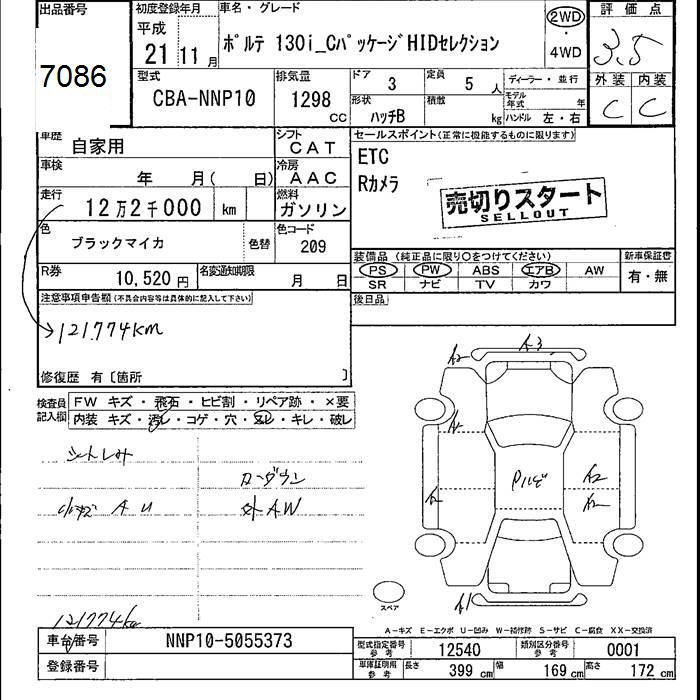 出品番号
7086
初度登録年月
平成
21年 11月
車名・グレード
ポルテ 130i_CパッケージHIDセレクション
2WD
・
4WD
評価点
3.5
型式
CBA-NNP10
排気量
1298
cc
ドア
3
定員
5 人
形状
ハッチB
積載
kg
ディーラー・並行
モデル年式
年
ハンドル 左・右
外装 内装
C C
車歴
自家用
シフト
CAT
セールスポイント(正常に機能するものに限ります)
ETC
Rカメラ
売切りスタート
SELLOUT
車検
年 月( 日)
冷房
AAC
走行
12万2千000 km
燃料
ガソリン
色
ブラックマイカ
色替
色コード
209
R券
10,520円
名変通知期限
月 日
装備品 (純正品に限り○をつけてください)
PS PW ABS エアB AW
SR ナビ TV カワ
新車保証書
有・無
後日品
注意事項申告欄(不具合内容等は具体的に記入して下さい)
121,774km
修復歴 有〔箇所 〕
検査員記入欄
FW キズ・飛石・ヒビ割・リペア跡・×要
内装 キズ・汚レ・コゲ・穴・スレ・キレ・破レ
A3
A2
A
A2
A2
A1
スペア
A-キズ E-エクボ U-凹み W-補修跡 S-サビ C-腐食 XX-交換済
外AW
AU
121774km
車台番号
NNP10-5055373
登録番号
型式指定番号 参考
12540
類別区分番号 参考
0001
車庫証明用 参考
長さ 399 cm
幅 169 cm
高さ 172 cm